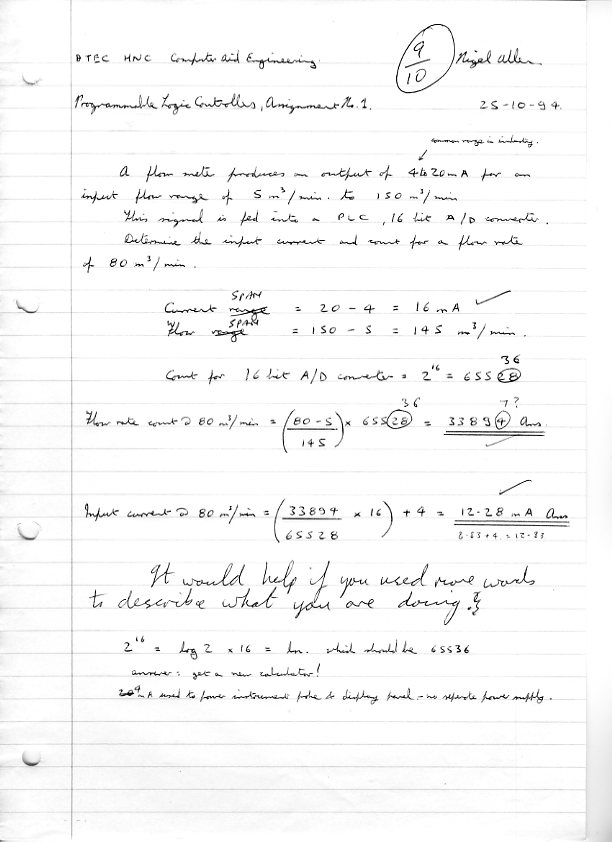 BTEC HNC Computer Aid Engineering. 9/10 Nigel Allen
Programmable Logic Controllers, Assignment No. 1. 25-10-94.
common range in industry.
A flow mete produces an output of 4 to 20 mA for an
input flow range of 5 m³/min. to 150 m³/min
This signal is fed into a PLC, 16 bit A/D converter.
Determine the input current and count for a flow rate
of 80 m³/min.
SPAN
Current range = 20 - 4 = 16 mA ✓
SPAN
Flow range = 150 - 5 = 145 m³/min.
36
Count for 16 bit A/D converter = 2¹⁶ = 65528
36 7?
Flow rate count @ 80 m³/min = (80 - 5 / 145) × 65528 = 33894 Ans.
✓
Input current @ 80 m³/min = (33894 / 65528 × 16) + 4 = 12.28 mA Ans
8.83 + 4 = 12.83
It would help if you used more words
to describe what you are doing!
2¹⁶ = log 2 × 16 = Inv. which should be 65536
answer: get a new calculator!
4mA used to power instrument probe & display panel - no seperate power supply.